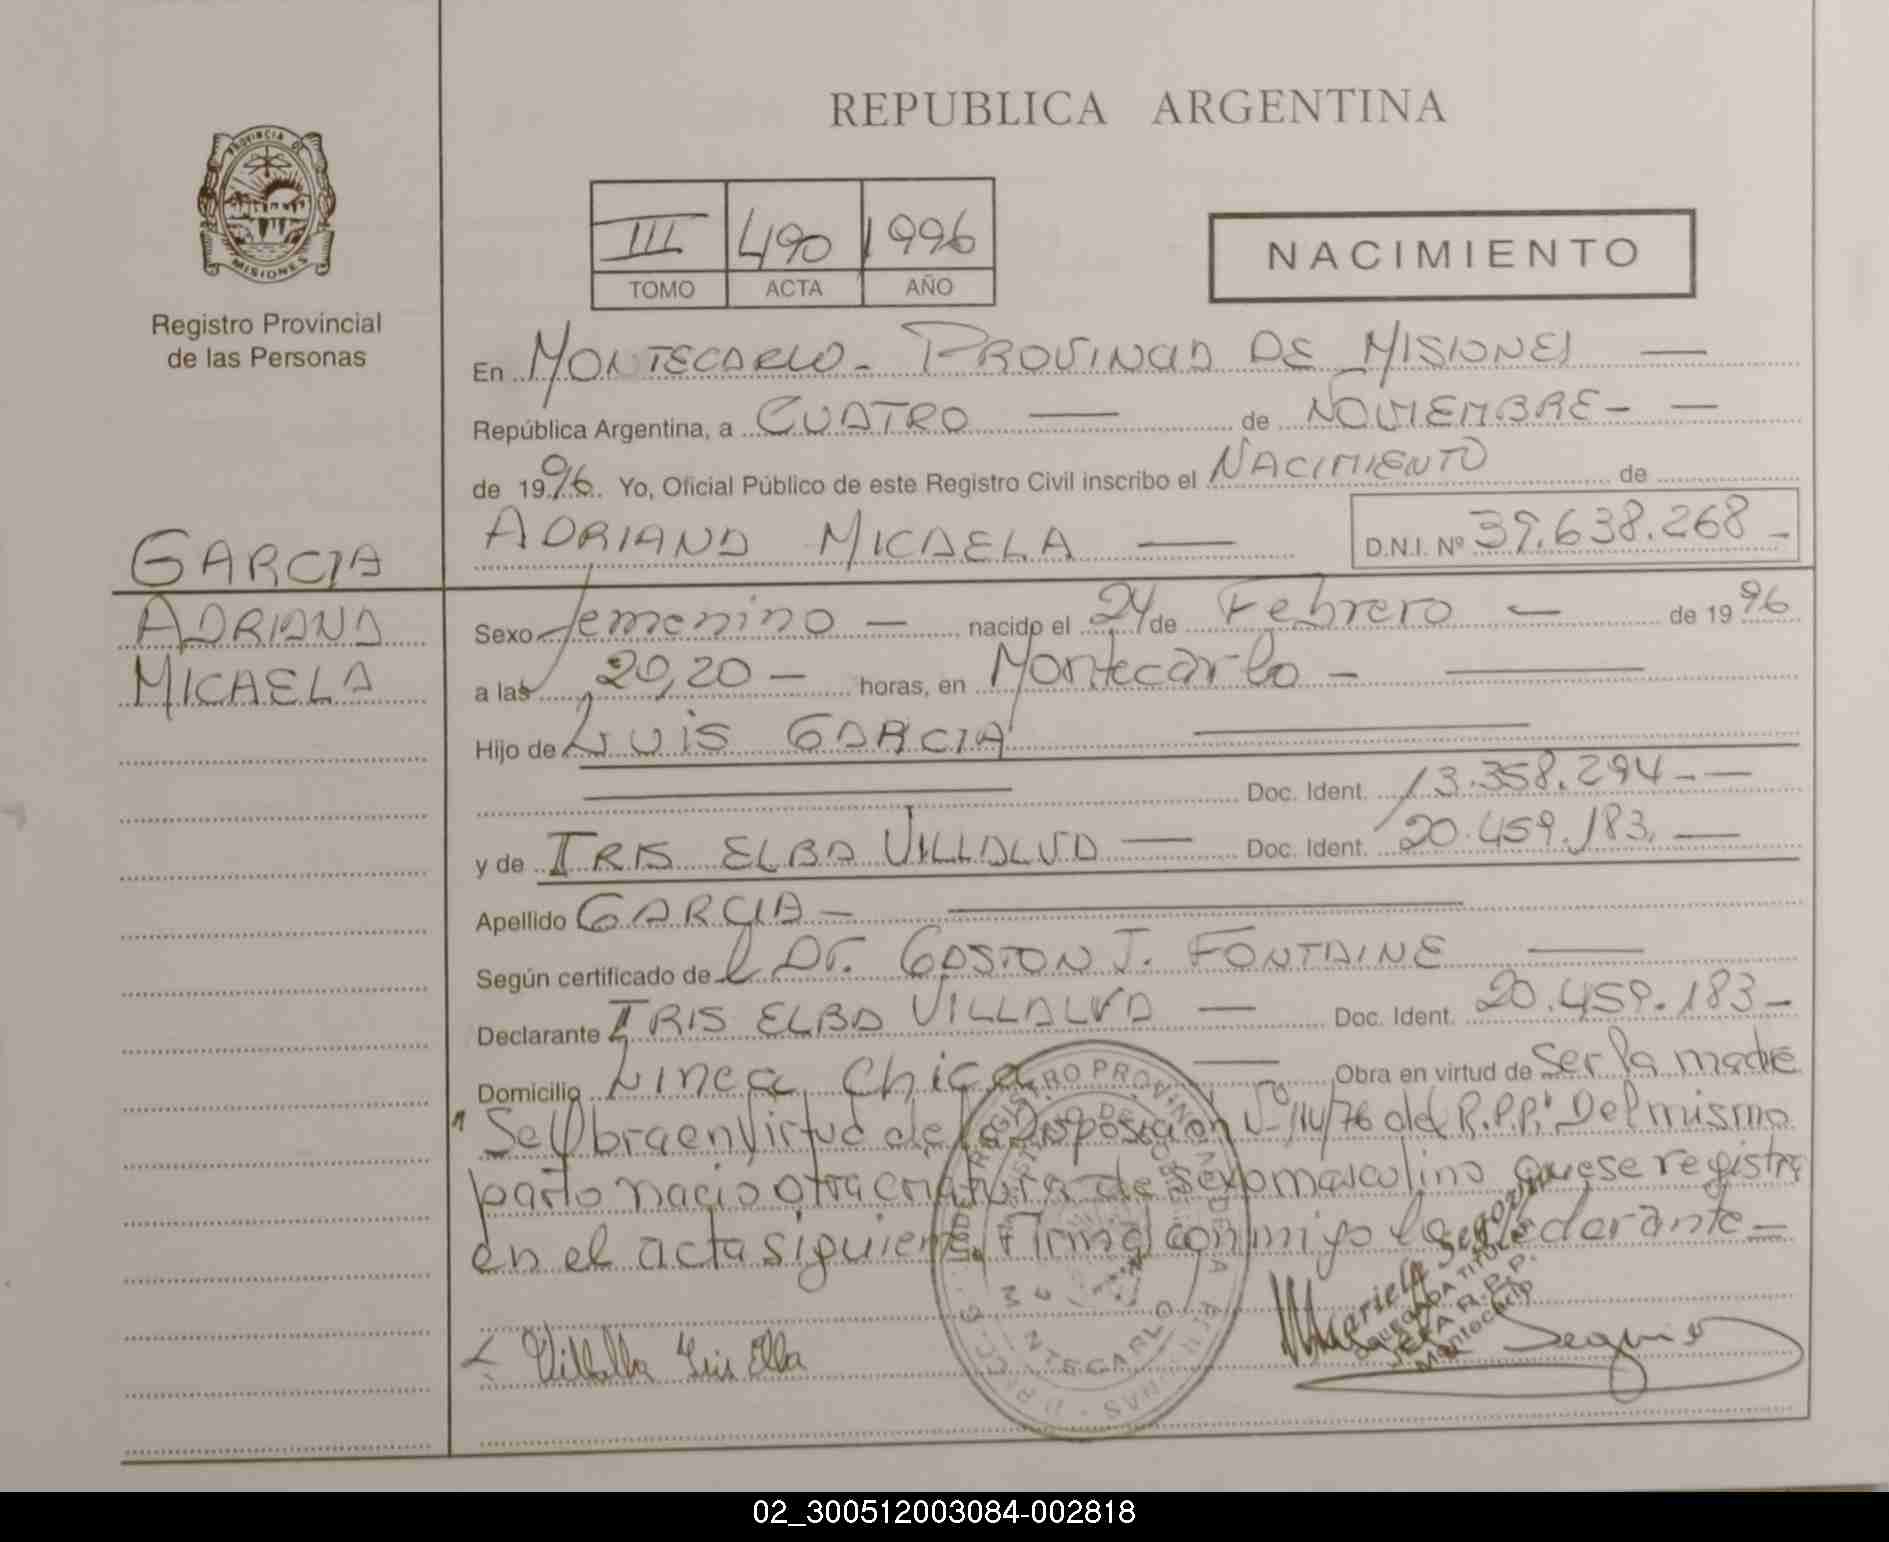 REPUBLICA ARGENTINA
PROVINCIA DE
MISIONES
Registro Provincial
de las Personas
III 490 1996
TOMO ACTA AÑO
NACIMIENTO
En MONTECARLO - PROVINCIA DE MISIONES
República Argentina, a CUATRO de NOVIEMBRE -
de 1996. Yo, Oficial Público de este Registro Civil inscribo el NACIMIENTO de
ADRIANA MICAELA D.N.I. Nº 39.638.268 -
GARCIA
ADRIANA
MICAELA
Sexo femenino - nacido el 24 de Febrero - de 1996
a las 20,20 - horas, en Montecarlo -
Hijo de LUIS GARCIA
Doc. Ident. 13.358.294 -
y de IRIS ELBA VILLALVA Doc. Ident. 20.459.183.
Apellido GARCIA -
Según certificado de l Dr. GASTON J. FONTAINE
Declarante IRIS ELBA VILLALVA - Doc. Ident. 20.459.183 -
Domicilio Linea Chica Obra en virtud de Ser la madre
"Se Obra en Virtud de la Disposición Nº 114/76 del R.P.P." Del mismo
parto nacio otra criatura de sexo masculino que se registra
en el acta siguiente. Firma conmigo la declarante -
Villalba Iris Elba
REGISTRO PROVINCIAL DE LAS PERSONAS
MONTECARLO
Mariela Segovia
DELEGADA TITULAR
JEFA R.P.P.
Montecarlo
02_300512003084-002818